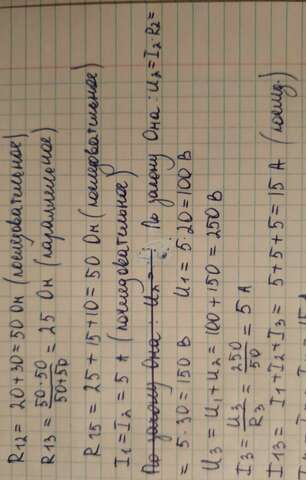 R12 = 20+30=50 Ом (последовательное)
R13 = 50·50/50+50 = 25 Ом (параллельное)
R15 = 25+15+10=50 Ом (последовательное)
I1=I2 = 5 А (последовательное)
По закону Ома: U2 = По закону Ома: U2=I2·R2=
= 5·30=150 В U1 = 5·20=100 В
U3 = U1+U2 = 100+150=250 В
I3 = U3/R3 = 250/50 = 5 А
I13 = I1+I2+I3 = 5+5+5=15 А